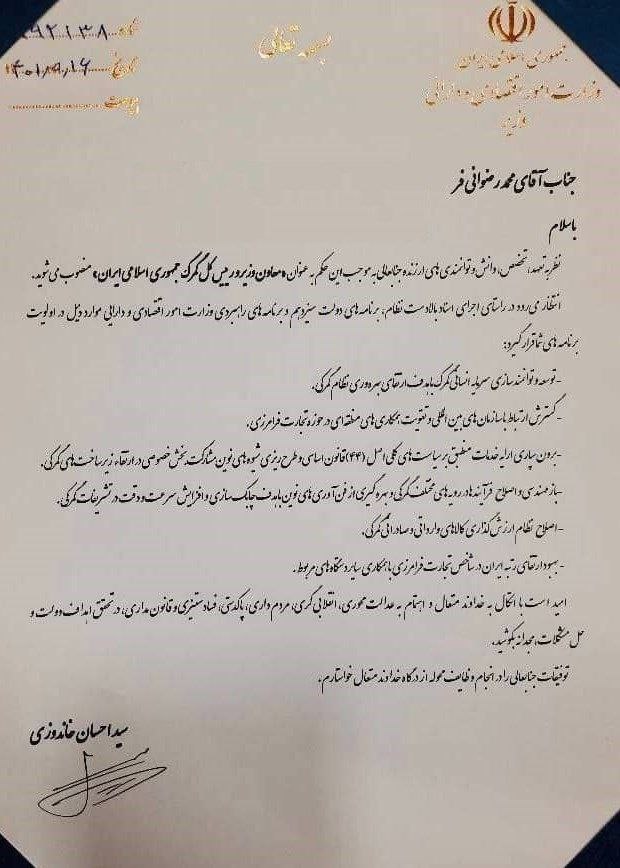 بسمه تعالی
جمهوری اسلامی ایران
وزارت امور اقتصادی و دارائی
وزیر
تاریخ ۱۴۰۱/۹/۱۶
پیوست
جناب آقای محمد رضوانی فر
باسلام
نظر به تعهد، تخصص، دانش و توانمندی های ارزنده جنابعالی به موجب این حکم به عنوان «معاون وزیر و رییس کل گمرک جمهوری اسلامی ایران» منصوب می شوید.
انتظار می رود در راستای اجرای اسناد بالادست نظام، برنامه های دولت سیزدهم و برنامه های راهبردی وزارت امور اقتصادی و دارایی موارد ذیل در اولویت
برنامه های شما قرار گیرد:
-توسعه و توانمند سازی سرمایه انسانی گمرک باهدف ارتقای بهره وری نظام گمرکی.
-گسترش ارتباط با سازمان های بین المللی و تقویت همکاری های منطقه ای در حوزه تجارت فرامرزی.
-برون سپاری ارایه خدمات منطبق بر سیاست های کلی اصل (۴۴) قانون اساسی و طرح ریزی شیوه های نوین مشارکت بخش خصوصی در ارتقاء زیرساخت های گمرکی.
-بازمهندسی و اصلاح فرآیندها در رویه های مختلف گمرکی و بهره گیری از فن آوری های نوین باهدف چابک سازی و افزایش سرعت و دقت در تشریفات گمرکی.
-اصلاح نظام ارزش گذاری کالاهای وارداتی و صادراتی گمرکی.
-بهبود ارتقای رتبه ایران در شاخص تجارت فرامرزی با همکاری سایر دستگاه های مربوط.
امید است با اتکال به خداوند متعال و اهتمام به عدالت محوری، انقلابی گری، مردم داری، پاکدستی، فساد ستیزی و قانون مداری، در تحقق اهداف دولت و
حل مشکلات، مجدانه بکوشید.
توفیقات جنابعالی را در انجام وظایف محوله از درگاه خداوند متعال خواستارم.
سید احسان خاندوزی